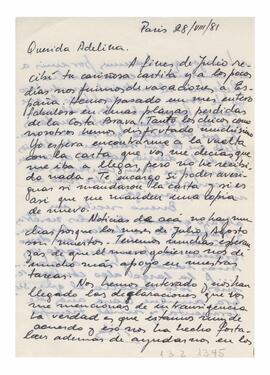 Paris 28/VIII/81
Querida Adelina.
A fines de Julio re-
cibí tu cariñosa cartita y a los pocos
días nos fuimos de vacaciones a Es-
paña. Hemos pasado un mes entero
fabuloso en unas playas perdidas
de la Costa Brava. Tanto los chicos como
nosotros hemos disfrutado muchísimo
Yo espera encontrarme a la vuelta
con la carta que vos me decías que
me iba a llegar, pero no he recibi-
do nada. Te encargo si podés averi-
guar si mandaron la carta y si es
así que me manden una copia
de nuevo.
Noticias de acá no hay mu-
chas porque los meses de Julio y Agosto
son muertos. Tenemos muchas esperan-
zas de que el nuevo gobierno nos dé
mucho más apoyo en nuestras
tareas.
Nos hemos enterado y nos han
llegado las declaraciones que vos
me mencionas de intransigencia
La verdad es que estamos muy de
acuerdo y eso nos ha hecho forta-
lecer además de ayudarnos en los
132 1345